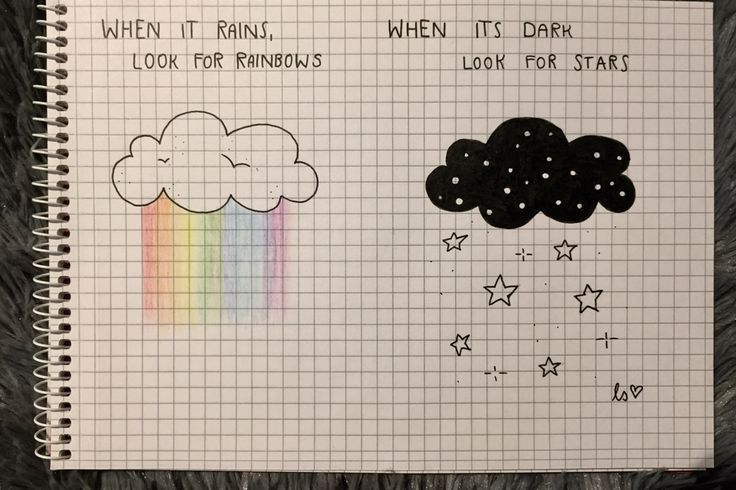 WHEN IT RAINS,
LOOK FOR RAINBOWS
WHEN ITS DARK
LOOK FOR STARS
ls♡